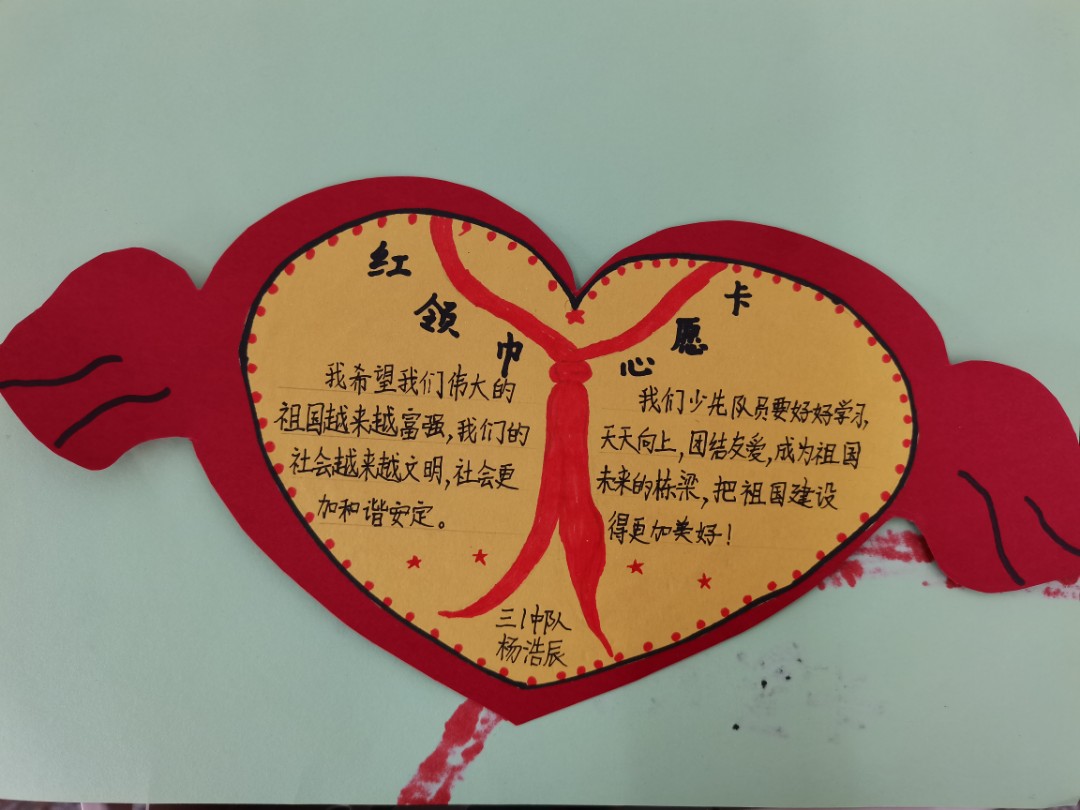 红领巾心愿卡
我希望我们伟大的
祖国越来越富强,我们的
社会越来越文明,社会更
加和谐安定。
我们少先队员要好好学习,
天天向上,团结友爱,成为祖国
未来的栋梁,把祖国建设
得更加美好!
三1中队
杨浩辰